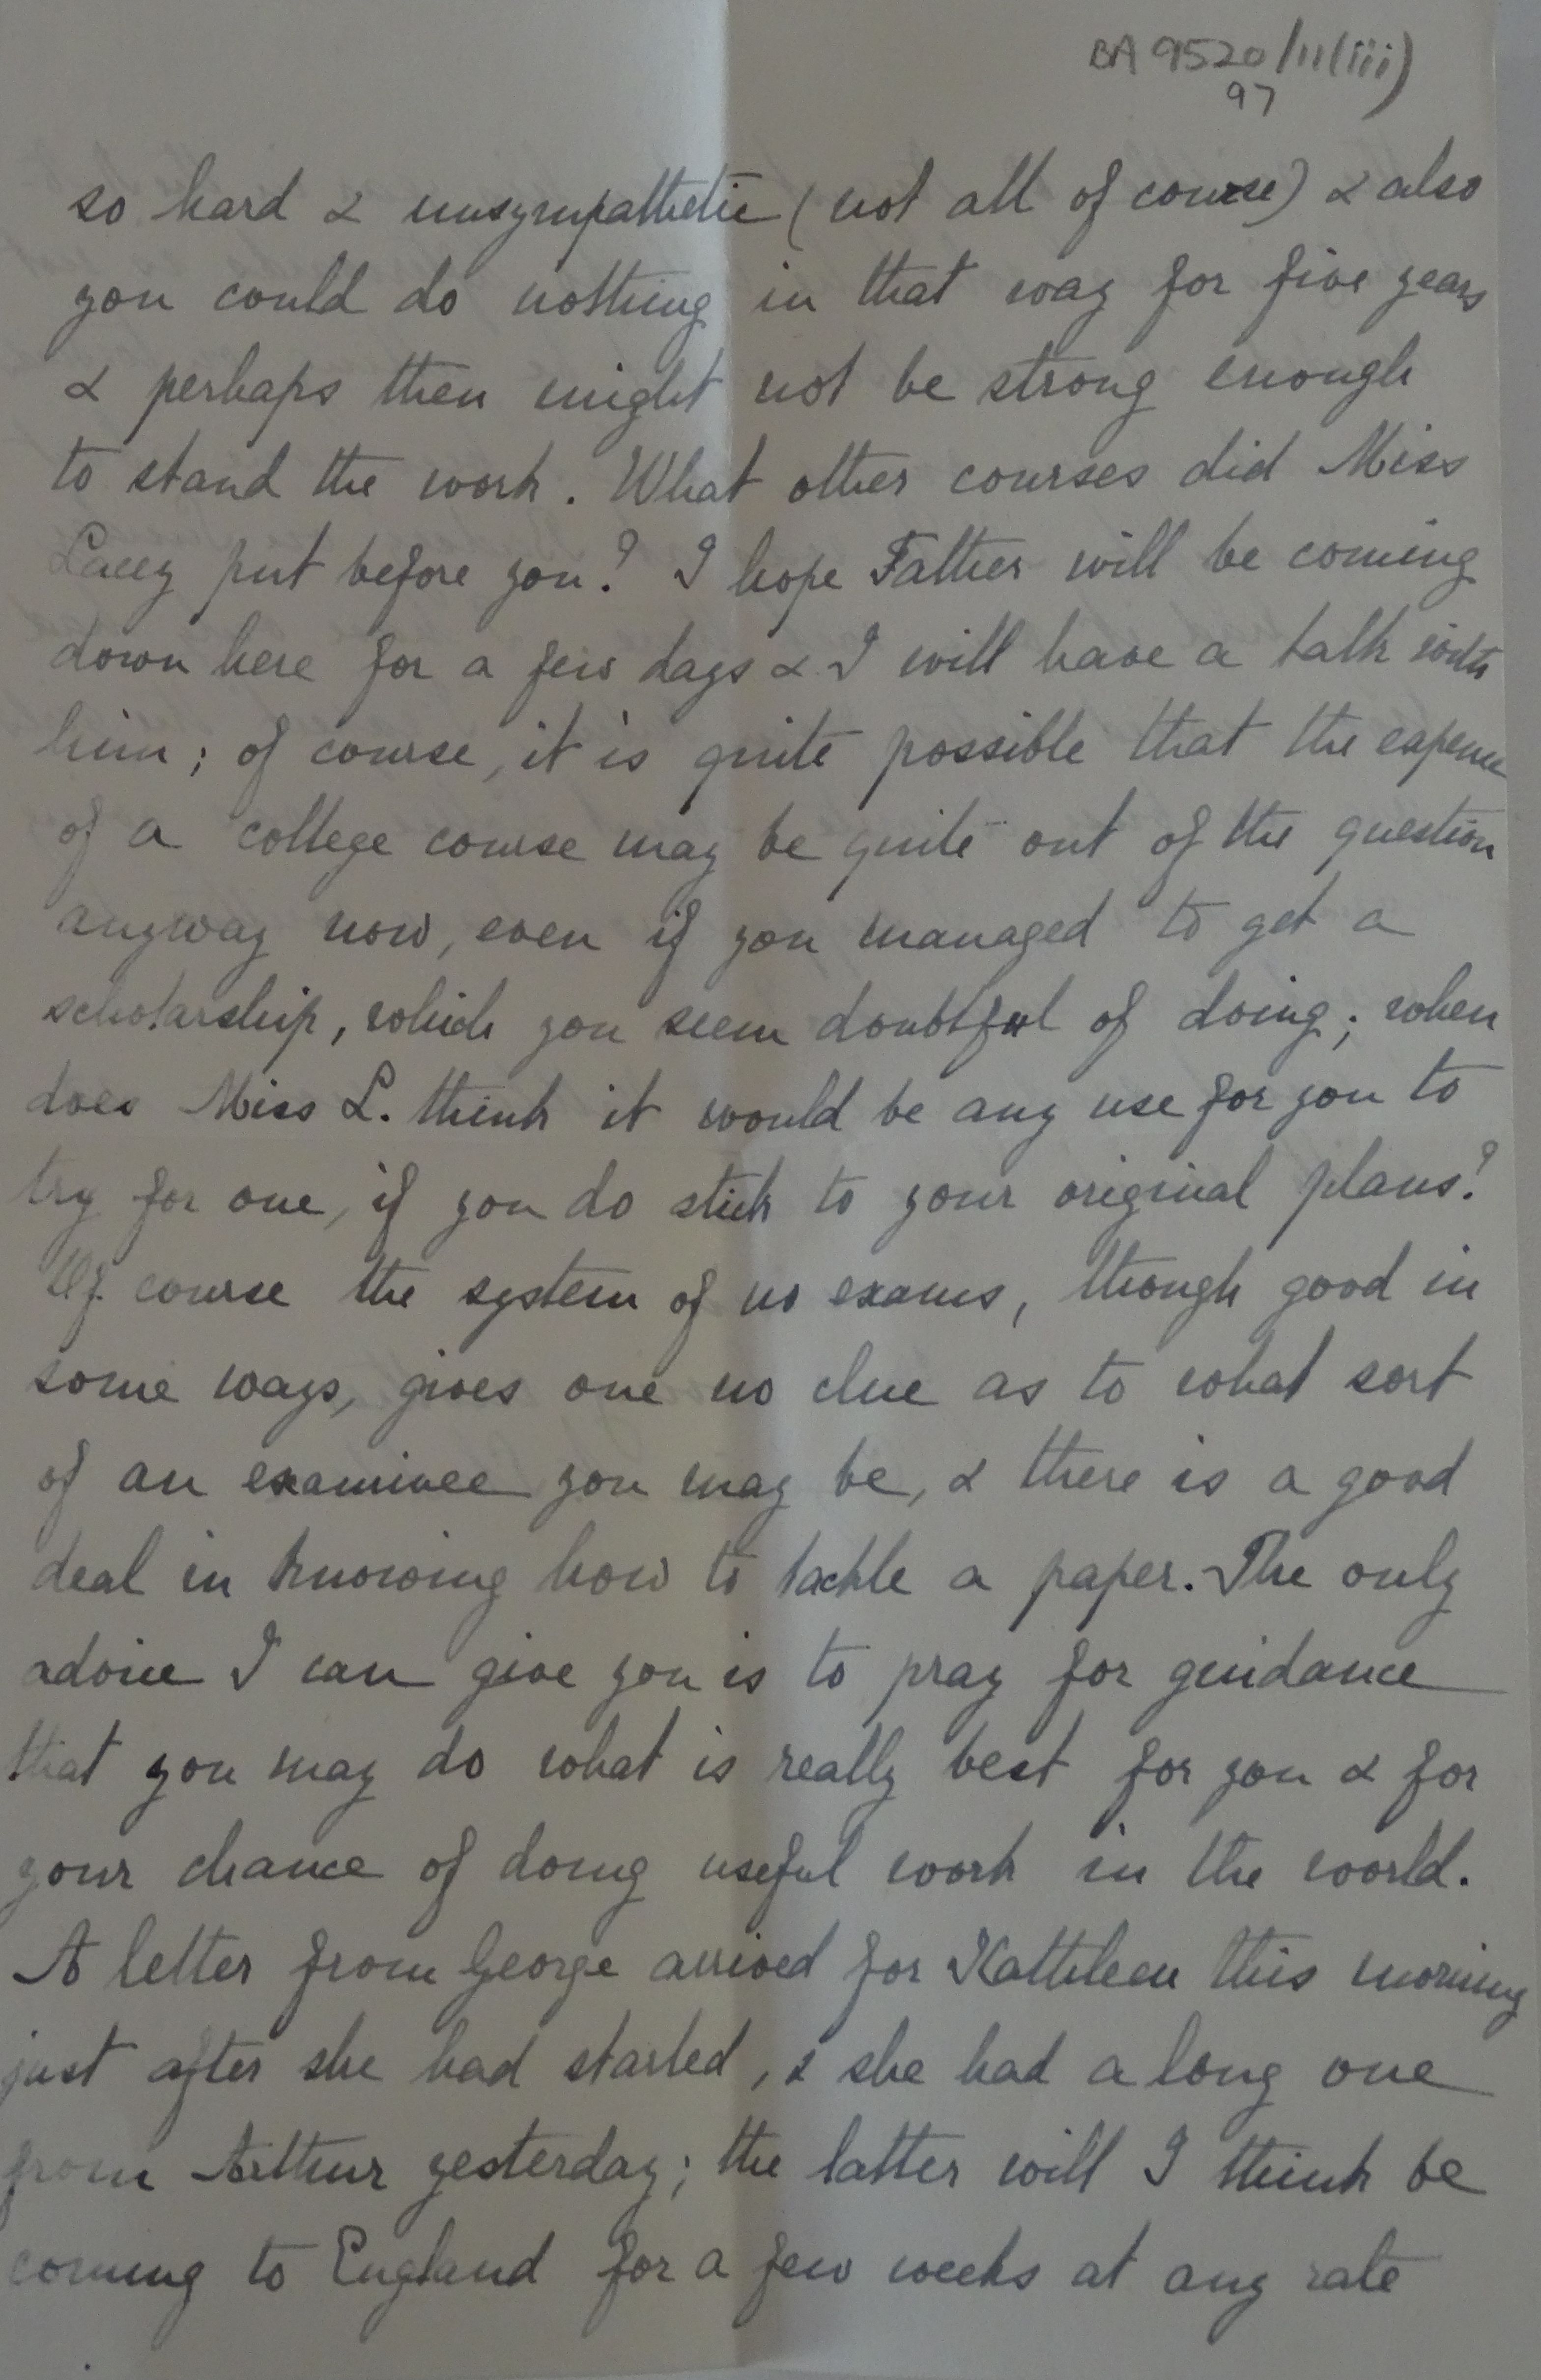 BA 9520/11(iii)
97
so hard & unsympathetic (not all of course) & also
you could do nothing in that way for five years
& perhaps then might not be strong enough
to stand the work. What other courses did Miss
Lacey put before you? I hope Father will be coming
down here for a few days & I will have a talk with
him; of course, it is quite possible that the expense
of a college course may be quite out of the question
anyway now, even if you managed to get a
scholarship, which you seem doubtful of doing; when
does Miss L. think it would be any use for you to
try for one, if you do stick to your original plans?
Of course the system of no exams, though good in
some ways, gives one no clue as to what sort
of an examinee you may be, & there is a good
deal in knowing how to tackle a paper. The only
advice I can give you is to pray for guidance
that you may do what is really best for you & for
your chance of doing useful work in the world.
A letter from George arrived for Kathleen this morning
just after she had started, & she had a long one
from Arthur yesterday; the latter will I think be
coming to England for a few weeks at any rate